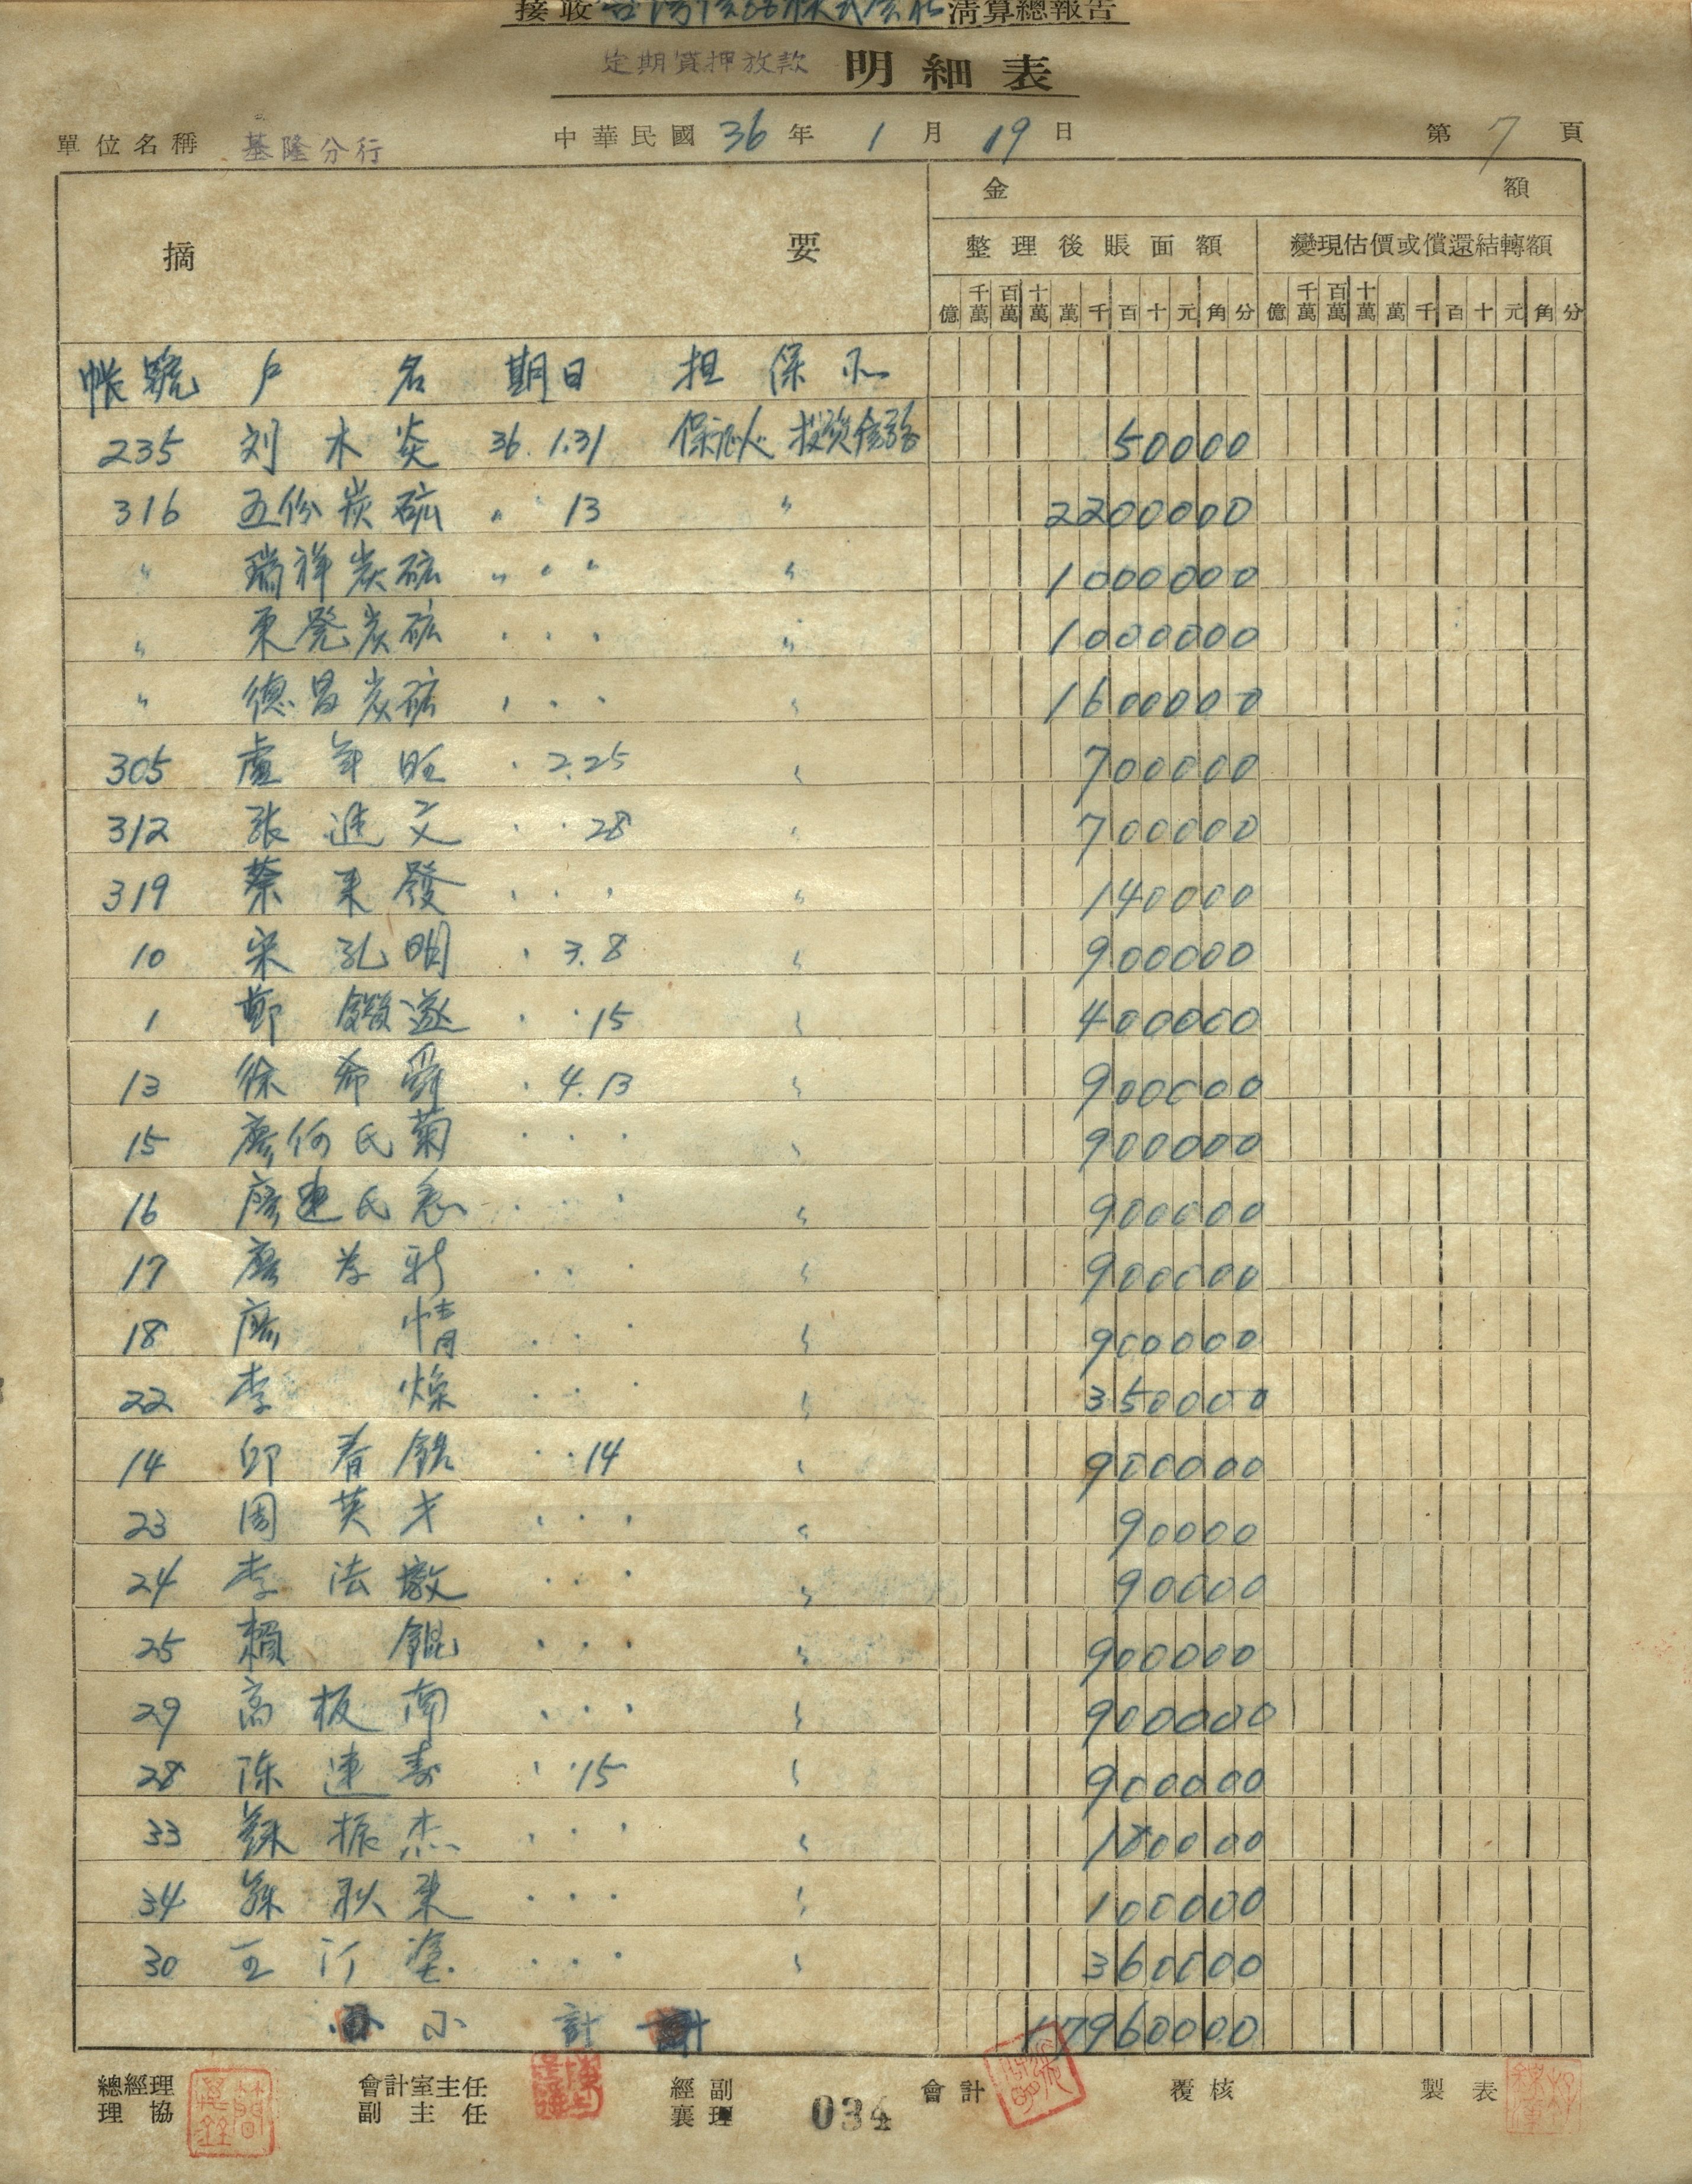 接收台灣信託株式會社清算總報告
定期質押放款 明細表
單位名稱 基隆分行 中華民國 36 年 1 月 19 日 第 7 頁
摘要 金額
整理後賬面額 變現估價或償還結轉額
億 千萬 百萬 十萬 萬 千 百 十 元 角 分 億 千萬 百萬 十萬 萬 千 百 十 元 角 分
帐號 户名 期日 担保品
235 刘木炎 36. 1.31 保証人 50000
316 五份炭砿 〃 13 〃 2200000
〃 瑞祥炭砿 〃 〃 〃 〃 1000000
〃 東発炭砿 〃 〃 〃 〃 1000000
〃 德昌炭砿 〃 〃 〃 〃 1600000
305 盧年旺 〃 2.25 〃 700000
312 張進文 〃 〃 28 〃 700000
319 蔡来發 〃 〃 〃 〃 140000
10 宋孔明 〃 3.8 〃 900000
1 鄭 〃 〃 15 〃 400000
13 徐希舜 〃 4.13 〃 900000
15 廖何氏菊 〃 〃 〃 〃 900000
16 廖連氏 〃 〃 〃 〃 900000
17 廖 〃 〃 〃 〃 900000
18 廖情 〃 〃 〃 〃 900000
22 李 〃 〃 〃 〃 350000
14 邱春 〃 〃 14 〃 900000
23 周英才 〃 〃 〃 〃 90000
24 李法墩 〃 〃 〃 〃 90000
25 賴錕 〃 〃 〃 〃 900000
29 高板南 〃 〃 〃 〃 900000
28 陈連壽 〃 〃 15 〃 900000
33 蘇振杰 〃 〃 〃 〃 180000
34 秋来 〃 〃 〃 〃 100000
30 王汀塗 〃 〃 〃 〃 360000
小計 17960000
總經理 會計室主任 經副 會計 覆核 製表
理協 副主任 襄理 034